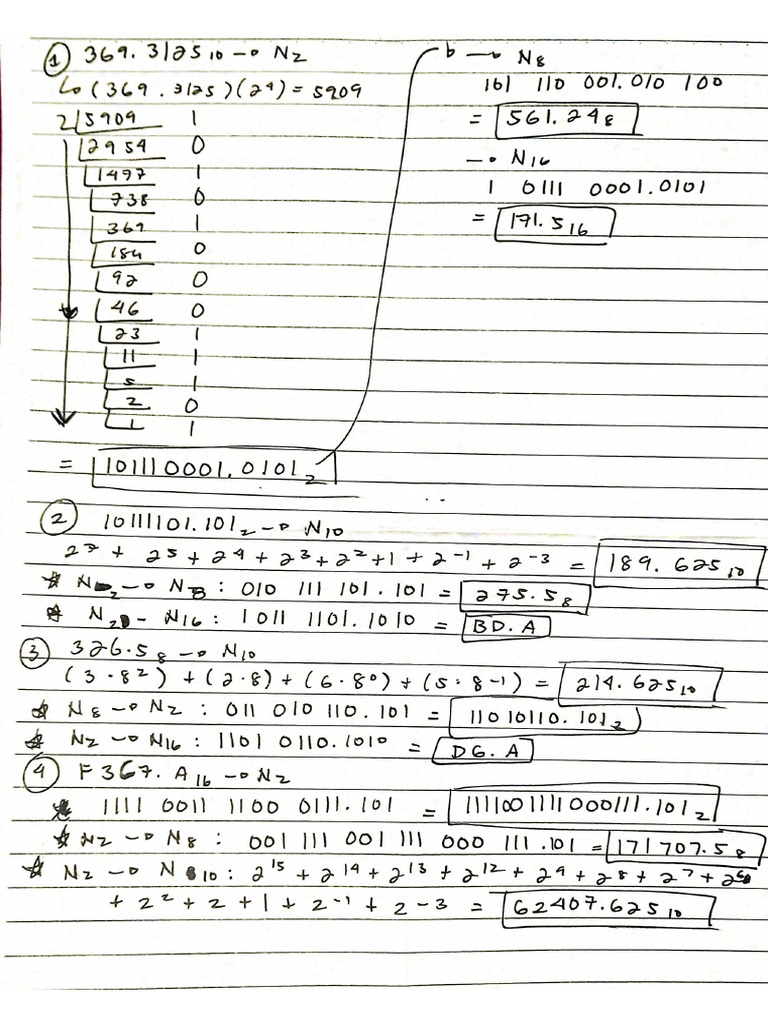 ① 369.3125₁₀ → N₂
↳ (369.3125)(2⁴) = 5909
2 5909 1
2954 0
1497 1
738 0
369 1
184 0
92 0
46 0
23 1
11 1
5 1
2 0
1 1
= 101110001.0101₂
b → N₈
101 110 001.010 100
= 561.24₈
→ N₁₆
1 0111 0001.0101
= 171.5₁₆
② 10111101.101₂ → N₁₀
2⁷ + 2⁵ + 2⁴ + 2³ + 2² + 1 + 2⁻¹ + 2⁻³ = 189.625₁₀
* N₂ → N₈ : 010 111 101.101 = 275.5₈
* N₂ - N₁₆ : 1011 1101.1010 = BD.A
③ 326.5₈ → N₁₀
(3·8²) + (2·8) + (6·8⁰) + (5·8⁻¹) = 214.625₁₀
* N₈ → N₂ : 011 010 110.101 = 11010110.101₂
* N₂ → N₁₆ : 1101 0110.1010 = D6.A
④ F367.A₁₆ → N₂
* 1111 0011 1100 0111.101 = 1111001111000111.101₂
* N₂ → N₈ : 001 111 001 111 000 111.101 = 171707.5₈
* N₂ → N₁₀ : 2¹⁵ + 2¹⁴ + 2¹³ + 2¹² + 2⁹ + 2⁸ + 2⁷ + 2⁶
+ 2² + 2 + 1 + 2⁻¹ + 2⁻³ = 62407.625₁₀